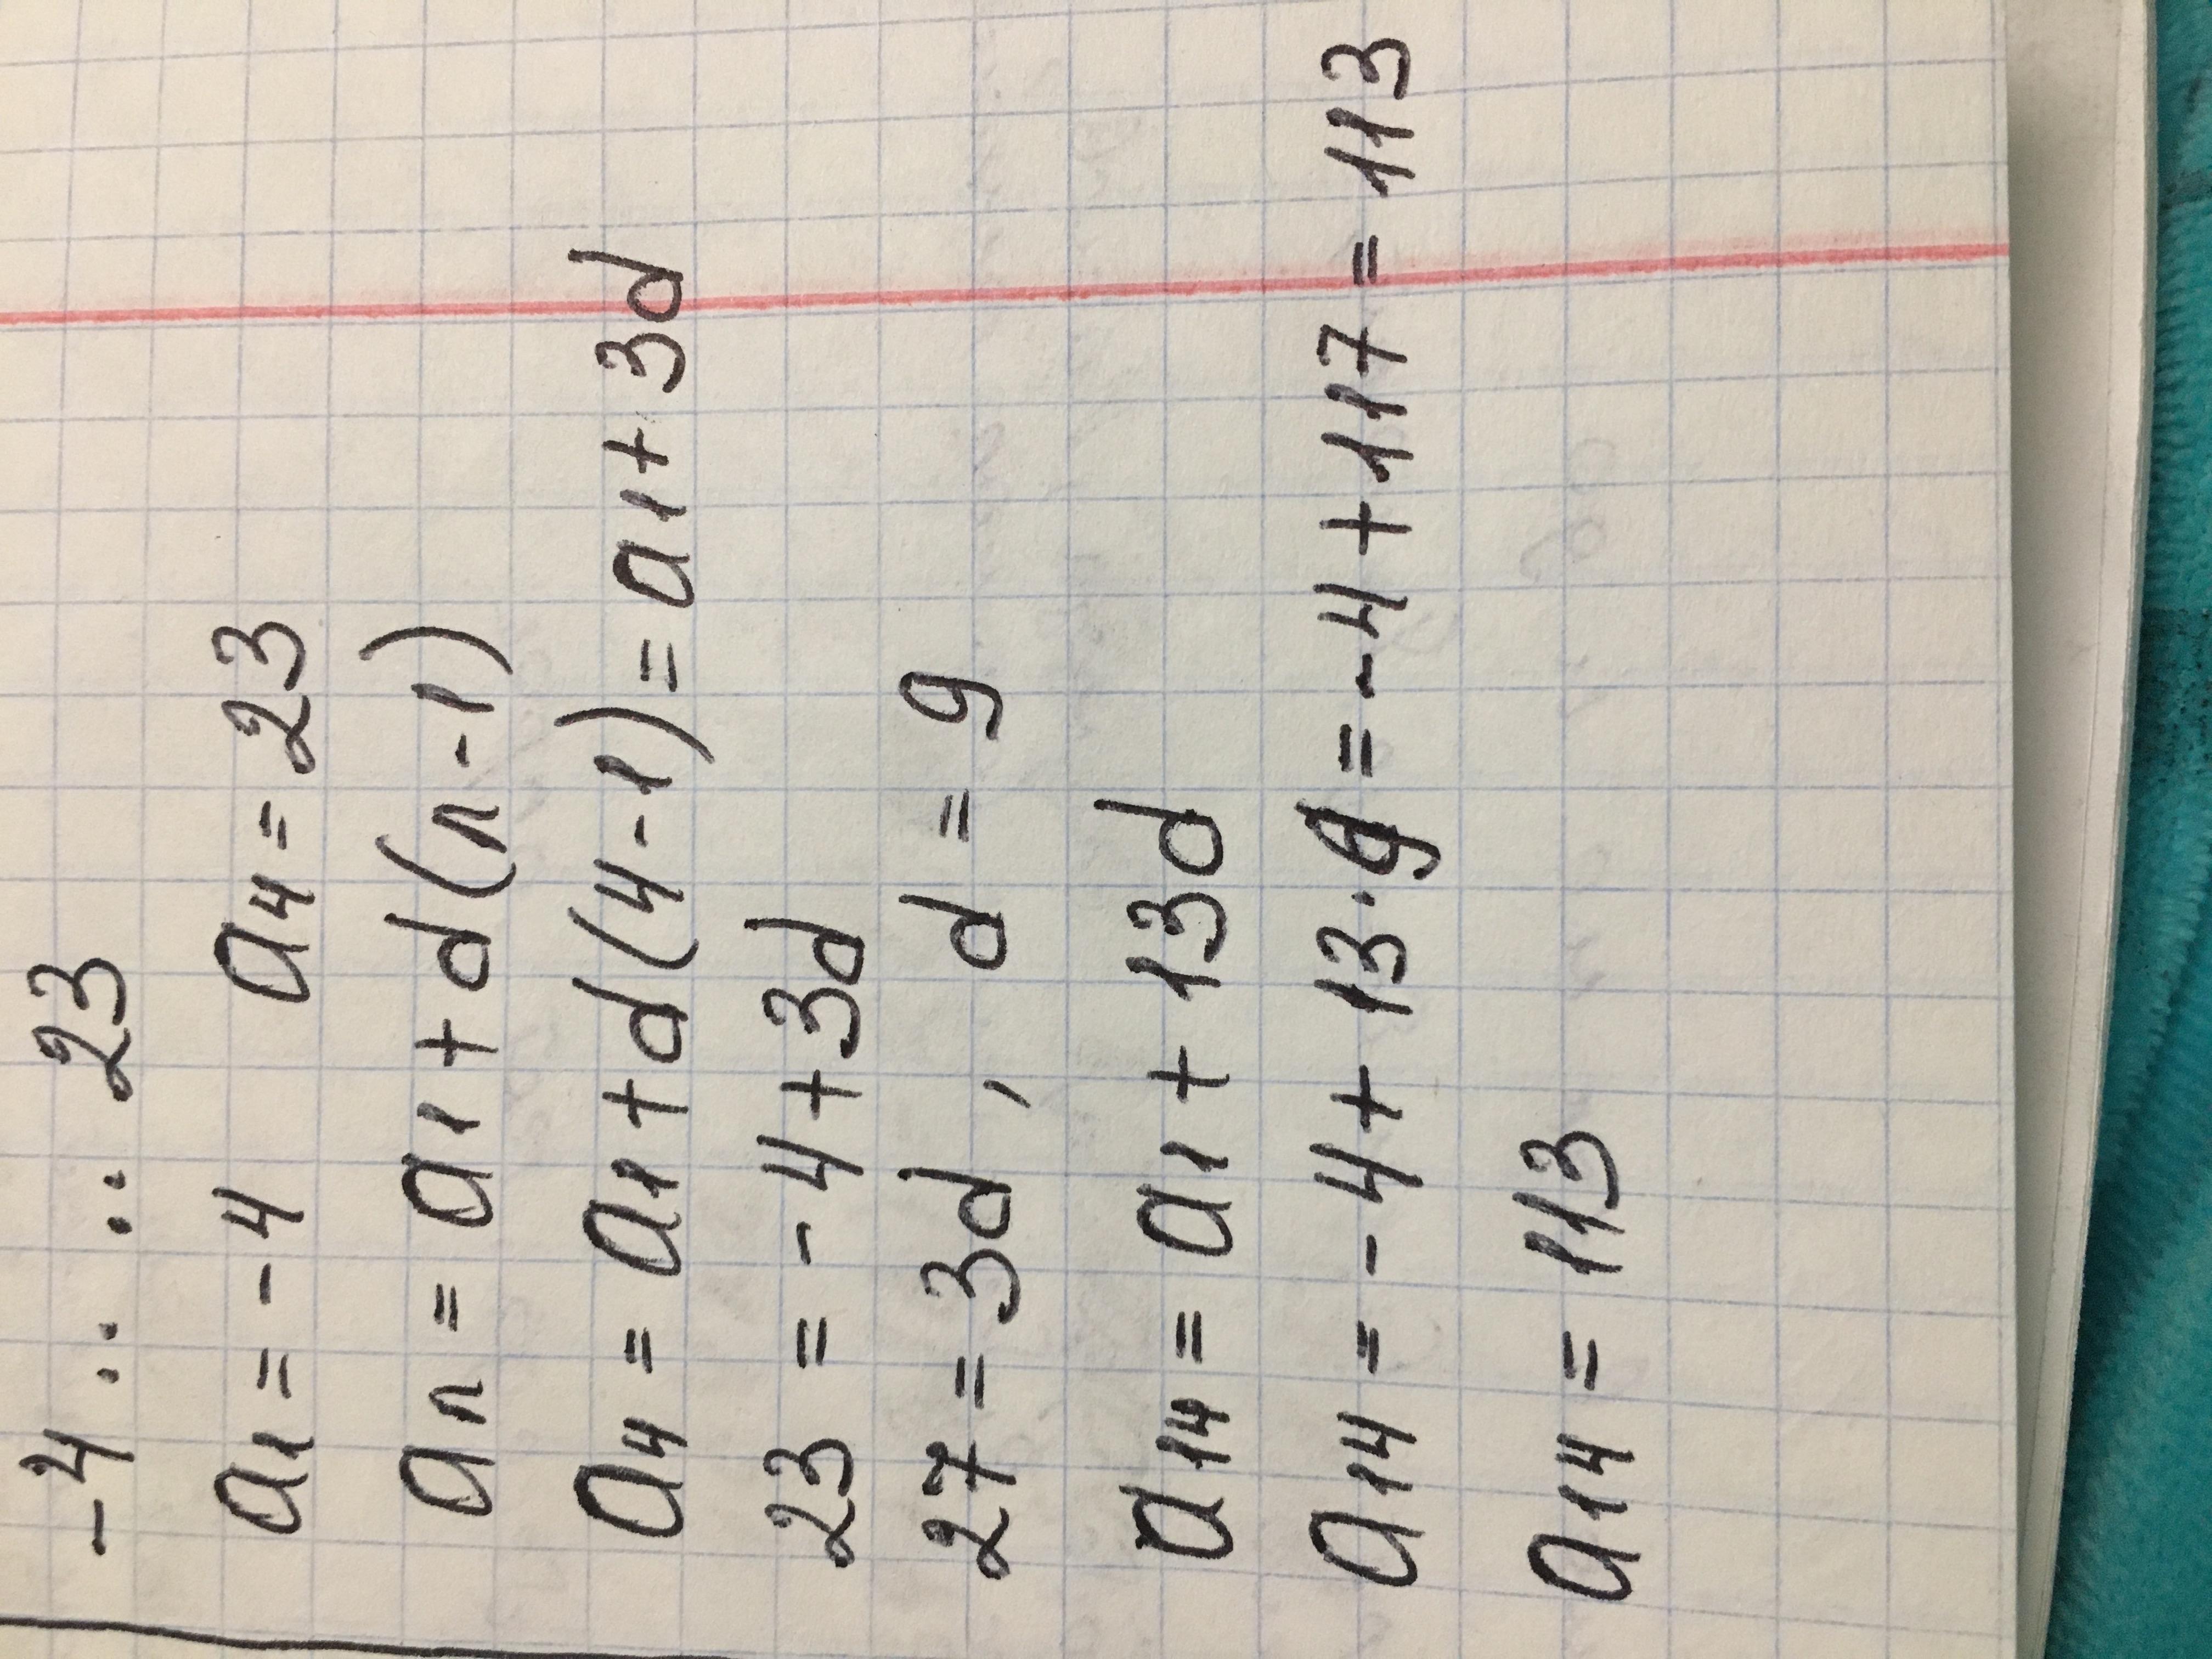 -4 .. .. 23
a₁ = -4 a₄ = 23
aₙ = a₁ + d(n-1)
a₄ = a₁ + d(4-1) = a₁ + 3d
23 = -4 + 3d
27 = 3d, d = 9
a₁₄ = a₁ + 13d
a₁₄ = -4 + 13·9 = -4 + 117 = 113
a₁₄ = 113